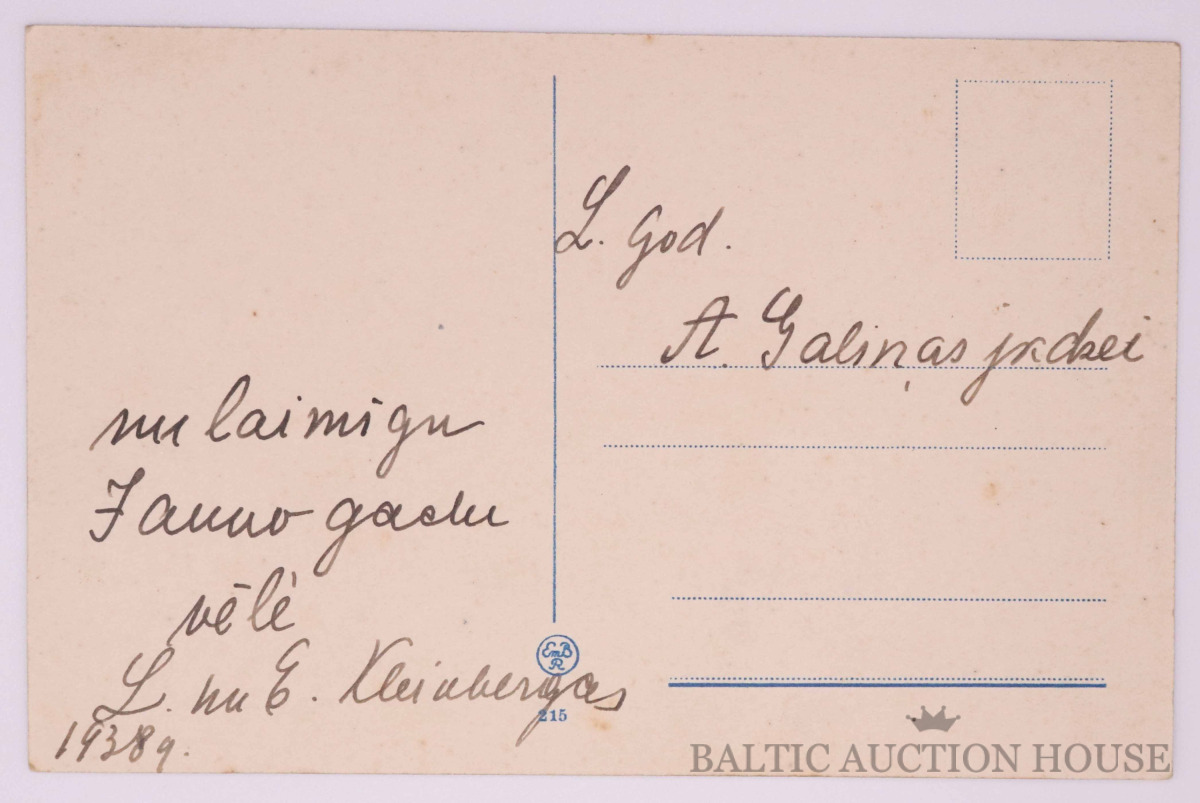 un laimīgu
Jauno gadu
vēlē
L. un E. Kleinbergas
1938 g.
L. God.
A. Galiņas jkdzei
EmB
R
215
BALTIC AUCTION HOUSE